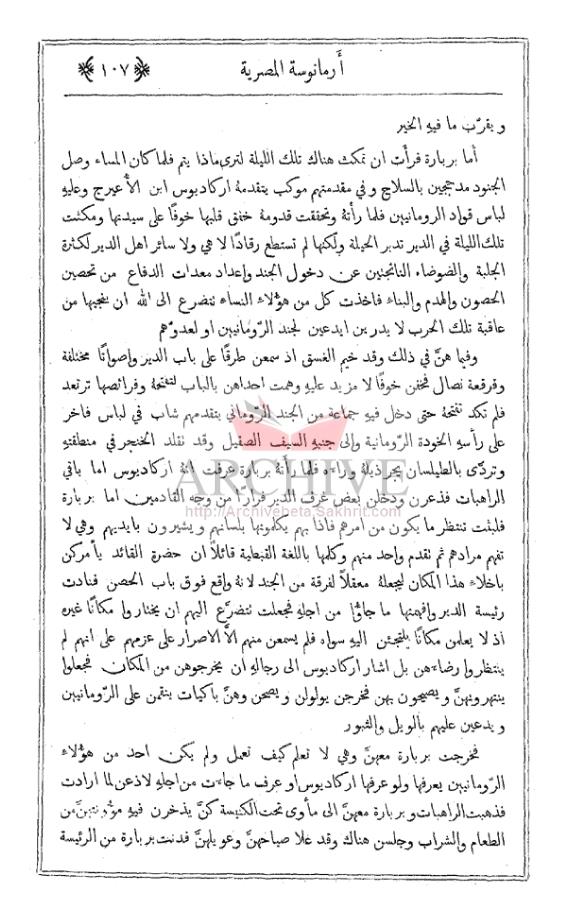 أَرمانوسة المصرية
﴿١٠٧﴾
و يقرّب ما فيهِ الخير
أما بربارة فرأت ان تمكث هناك تلك الليلة لترى ماذا يتم فلما كان المساء وصل
الجنود مدججين بالسلاح وفي مقدمتهم موكب يتقدمهُ اركاديوس ابن الأعيرج وعليهِ
لباس قواد الرومانيين فلما رأتهُ وتحققت قدومهُ خفق قلبها خوفًا على سيدتها ومكثت
تلك الليلة في الدير تدبر الحيلة ولكنها لم تستطع رقادًا لا هي ولا سائر اهل الدير لكثرة
الجلبة والضوضاء الناتجتين عن دخول الجند وإعداد معدات الدفاع من تحصين
الحصون والهدم والبناء فاخذت كل من هؤلاء النساء تتضرع الى الله ان ينجيها من
عاقبة تلك الحرب لا يدرين ايدعين لجند الرّومانيين او لعدوّهم
وفيما هنَّ في ذلك وقد خيم الغسق اذ سمعن طرقًا على باب الدير واصواتًا مختلفة
وقرقعة نصال فخفن خوفًا لا مزيد عليهِ وهمت احداهن بالباب لتفتحهُ وفرائصها ترتعد
فلم تكد تفتحهُ حتى دخل فيهِ جماعة من الجند الرّوماني يتقدمهم شاب في لباس فاخر
على رأسهِ الخودة الرّومانية وإلى جنبهِ السيف الصقيل وقد تقلد الخنجر في منطقتهِ
وتردّى بالطيلسان يجر ذيلهُ وراءهُ فلما رأتهُ بربارة عرفت انهُ اركاديوس اما باقي
الراهبات فذعرن ودخلن بعض غرف الدير فرارًا من وجه القادمين اما بربارة
فلبثت تنتظر ما يكون من امرهم فاذا بهم يكلمونها بلسانهم ويشيرون بايديهم وهي لا
تفهم مرادهم ثم تقدم واحد منهم وكلمها باللغة القبطية قائلاً ان حضرة القائد يأمركن
باخلاء هذا المكان ليجعلهُ معقلاً لفرقة من الجند لانهُ واقع فوق باب الحصن فنادت
رئيسة الدير وافهمتها ما جاؤا من اجلهِ فجعلت تتضرّع اليهم ان يختاروا مكانًا غيره
اذ لا يعلمن مكانًا يلتجئن اليهِ سواه فلم يسمعن منهم الاَّ الاصرار على عزمهم على انهم لم
ينتظروا رضاءهن بل اشار اركاديوس الى رجالهِ ان يخرجوهن من المكان فجعلوا
ينتهرونهنَّ و يصيحون بهن فخرجن يولولن و يصحن وهنَّ باكيات ينقمن على الرّومانيين
و يدعين عليهم بالويل والثبور
فخرجت بربارة معهنَّ وهي لا تعلم كيف تعمل ولم يكن احد من هؤلاء
الرّومانيين يعرفها ولو عرفها اركاديوس او عرف ما جاءت من اجلهِ لاذعن لما ارادت
فذهبت الراهبات و بربارة معهنَّ الى مأوى تحت الكنيسة كنَّ يذخرن فيهِ من
الطعام والشراب وجلسن هناك وقد علا صياحهنَّ وعويلهنَّ فدنت بربارة من الرئيسة
ARCHIVE
http://Archivebeta.Sakhrit.com